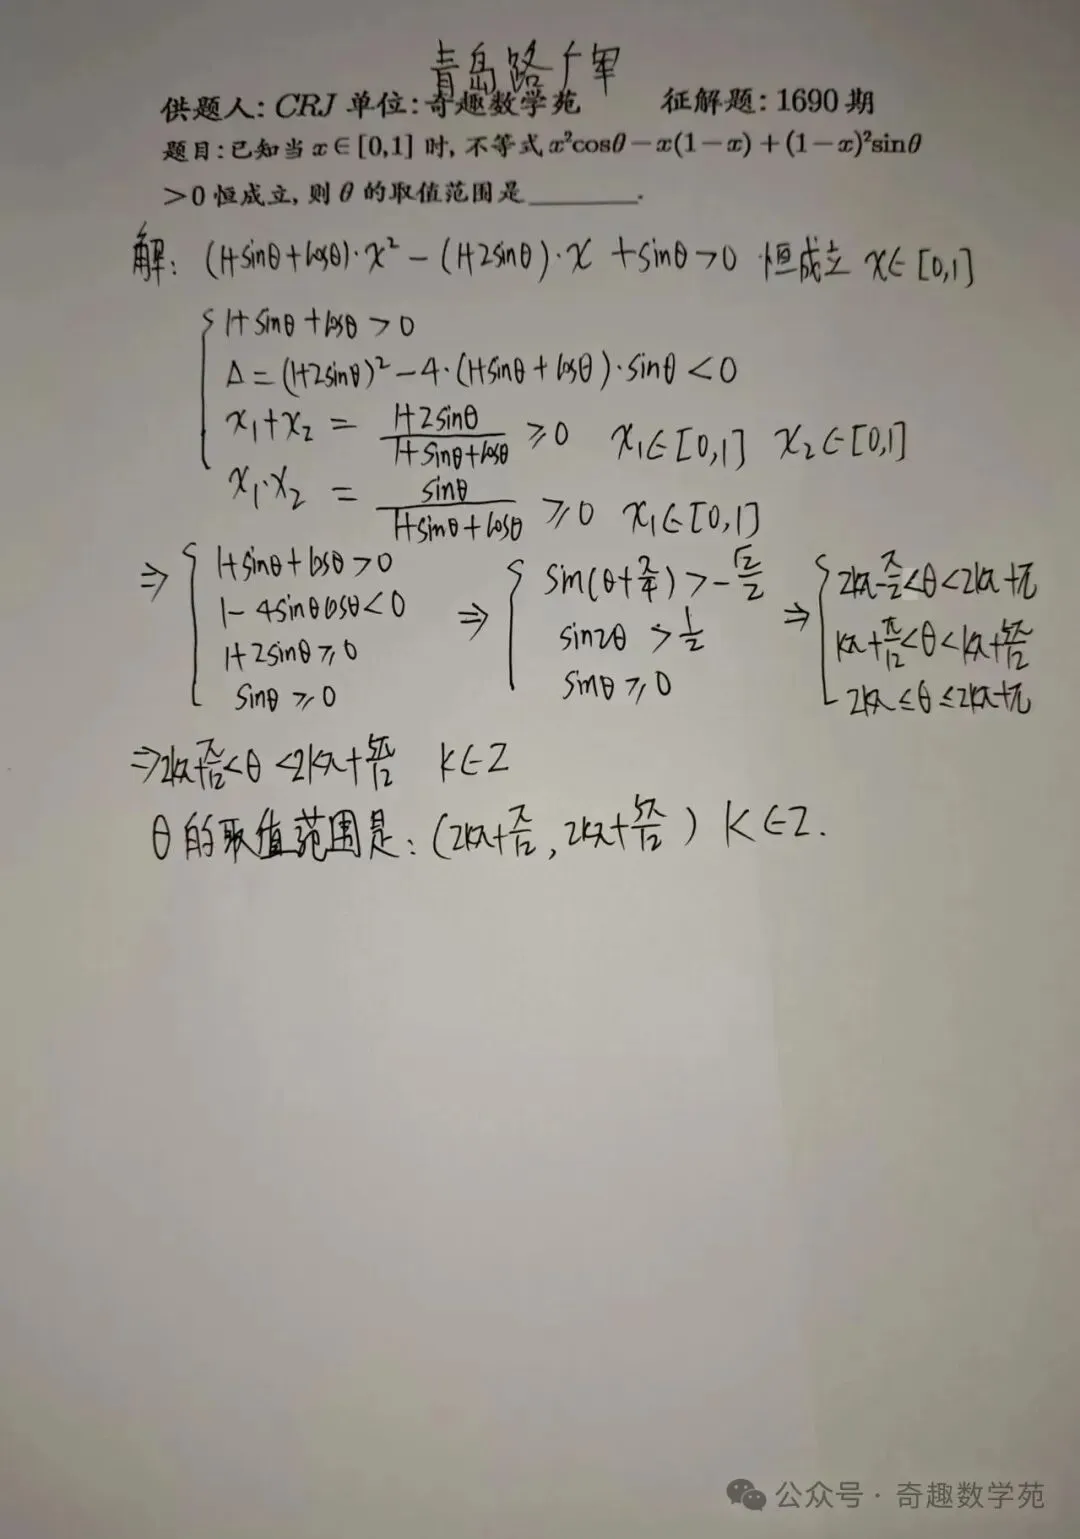 青岛路广军
供题人: CRJ 单位: 奇趣数学苑 征解题: 1690 期
题目: 已知当 x∈[0,1] 时, 不等式 x²cosθ－x(1－x)＋(1－x)²sinθ
＞0 恒成立, 则 θ 的取值范围是________.
解: (1+sinθ+cosθ)·x² － (1+2sinθ)·x +sinθ>0 恒成立 x∈[0,1]
{ 1+sinθ+cosθ > 0
Δ = (1+2sinθ)² － 4·(1+sinθ+cosθ)·sinθ < 0
x₁+x₂ = (1+2sinθ)/(1+sinθ+cosθ) ≥ 0 x₁∈[0,1] x₂∈[0,1]
x₁·x₂ = sinθ/(1+sinθ+cosθ) ≥ 0 x₁∈[0,1]
⇒ { 1+sinθ+cosθ>0 ⇒ { sin(θ+π/4) > -√2/2 ⇒ { 2kπ-π/2<θ<2kπ+π
1-4sinθcosθ<0 sin2θ > 1/2 kπ+π/12<θ<kπ+5π/12
1+2sinθ≥0 sinθ≥0 2kπ≤θ≤2kπ+π
sinθ≥0
⇒2kπ+π/12<θ<2kπ+5π/12 k∈Z
θ的取值范围是: (2kπ+π/12, 2kπ+5π/12) k∈Z.
公众号·奇趣数学苑